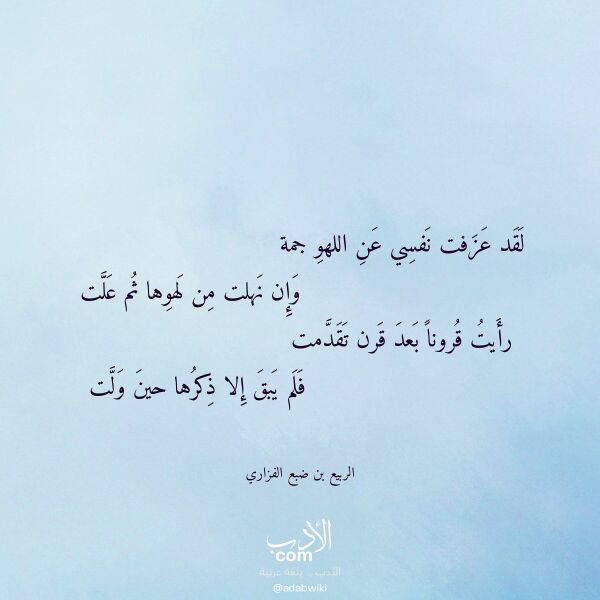 لَقَد عَزَفت نَفسِي عَنِ اللهوِ جمة
وَإِن نَهلت مِن لَهوِها ثُم عَلَّت
رأَيتُ قُروناً بَعدَ قَرن تَقَدَّمت
فَلَم يَبقَ إِلا ذِكرُها حينَ وَلَّت
الربيع بن ضبع الفزاري
الأدب
com
الأدب .. بلغة عربية
@adabwiki